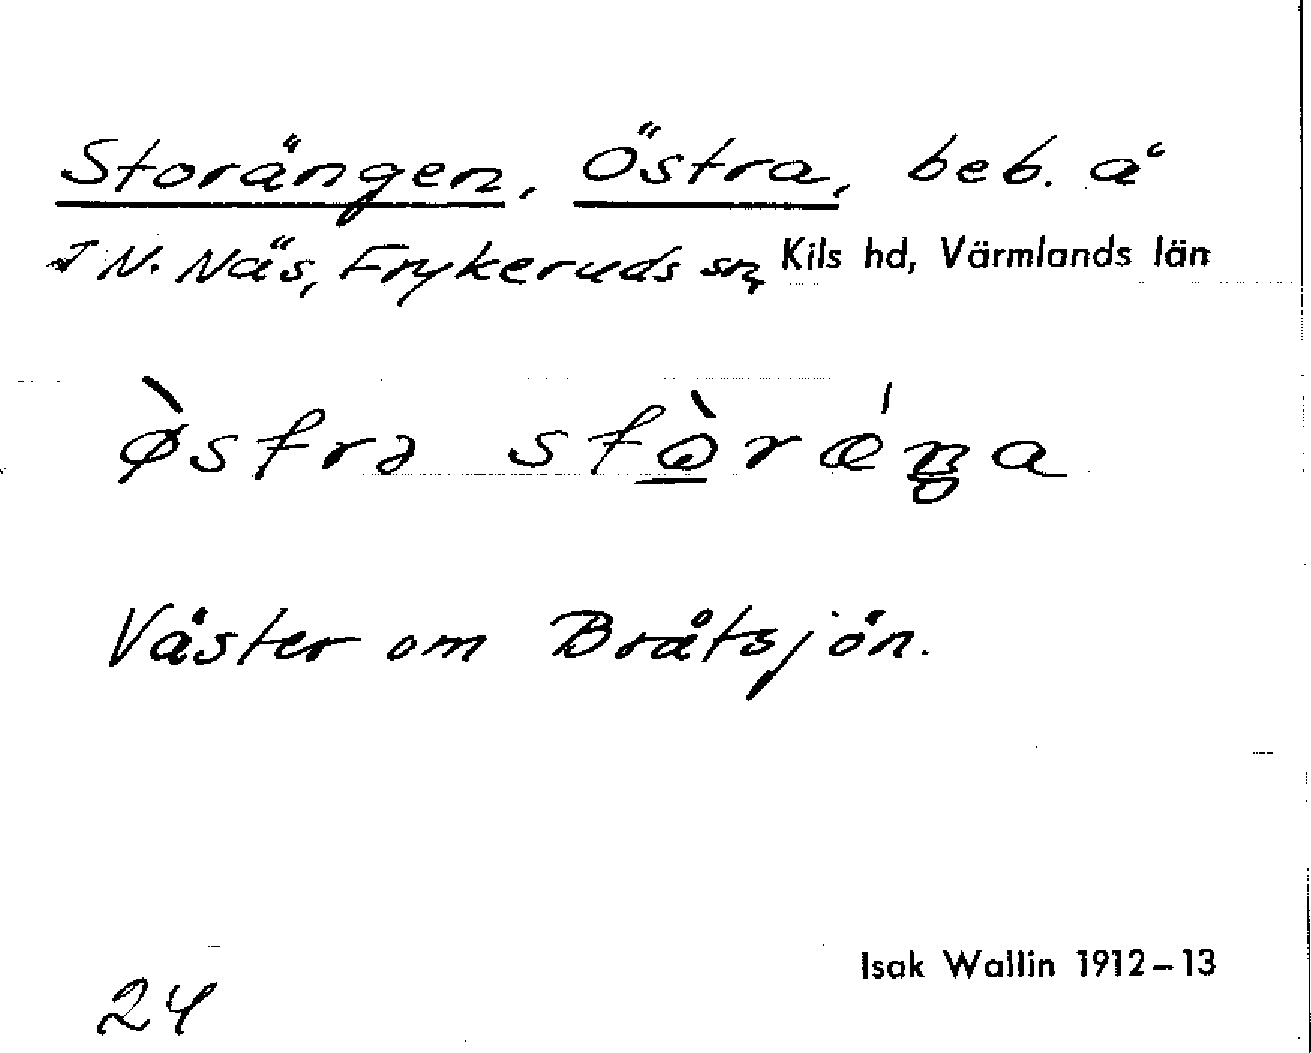 Storängen, Östra, beb. å
I N. Näs, Frykeruds sn, Kils hd, Värmlands län
ø̀strə stò̲rǽŋa
Väster om Bråtsjön.
Isak Wallin 1912–13
24